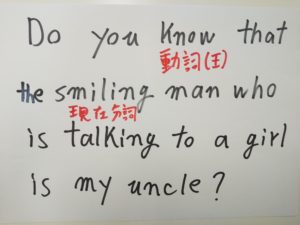 Do you know that
動詞(王)
the smiling man who
現在分詞
is talking to a girl
is my uncle?